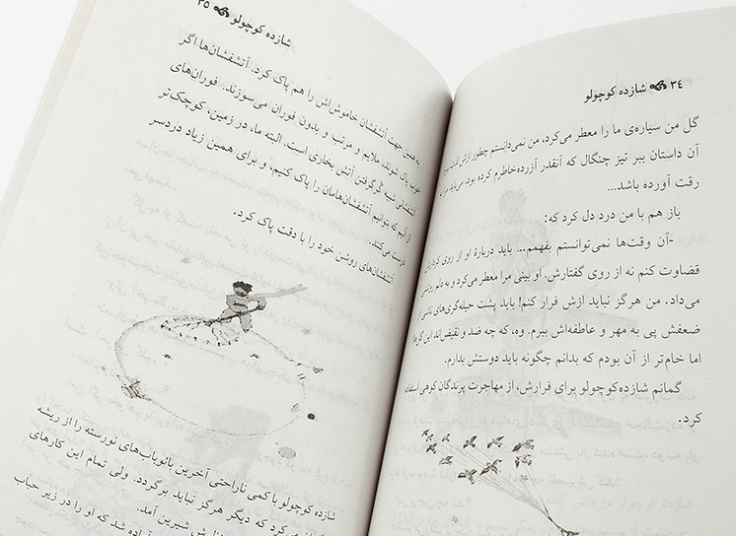 ۳۴ شازده کوچولو
گل من سیاره‌ی ما را معطر می‌کرد، من نمی‌دانستم چطور ازش لذت ببرم
آن داستان ببر تیز چنگال که آنقدر آزرده‌خاطرم کرده بود، می‌باید مرا به
رقت آورده باشد...
باز هم با من درد دل کرد که:
-آن وقت‌ها نمی‌توانستم بفهمم... باید دربارهٔ او از روی کردارش
قضاوت کنم نه از روی گفتارش. او بینی مرا معطر می‌کرد و به دلم روشنی
می‌داد. من هرگز نباید ازش فرار کنم! باید پشت حیله‌گری‌های ناشی از
ضعفش پی به مهر و عاطفه‌اش ببرم. وه، که چه ضد و نقیض‌اند این گل‌ها
اما خام‌تر از آن بودم که بدانم چگونه باید دوستش بدارم.
گمانم شازده‌کوچولو برای فرارش، از مهاجرت پرندگان کوهی استفاده
کرد.
شازده کوچولو ۳۵
به همین جهت آتشفشان خاموش‌اش را هم پاک کرد. آتشفشان‌ها اگر
خوب پاک شوند، ملایم و مرتب و بدون فوران می‌سوزند. فوران‌های
آتشفشانی شبیه گُرگرفتن آتش بخاری است. البته ما، در زمین، کوچک‌تر
از آنیم که بتوانیم آتشفشان‌هامان را پاک کنیم، و برای همین زیاد دردسر
درست می‌کنند.
آتشفشان‌های روشن خود را با دقت پاک کرد.
شازده‌کوچولو با کمی ناراحتی آخرین بائوباب‌های نورسته را از ریشه
می‌کرد که دیگر هرگز نباید برگردد. ولی تمام این کارهای
شیرین آمد.
آماده شد که او را در زیر حباب